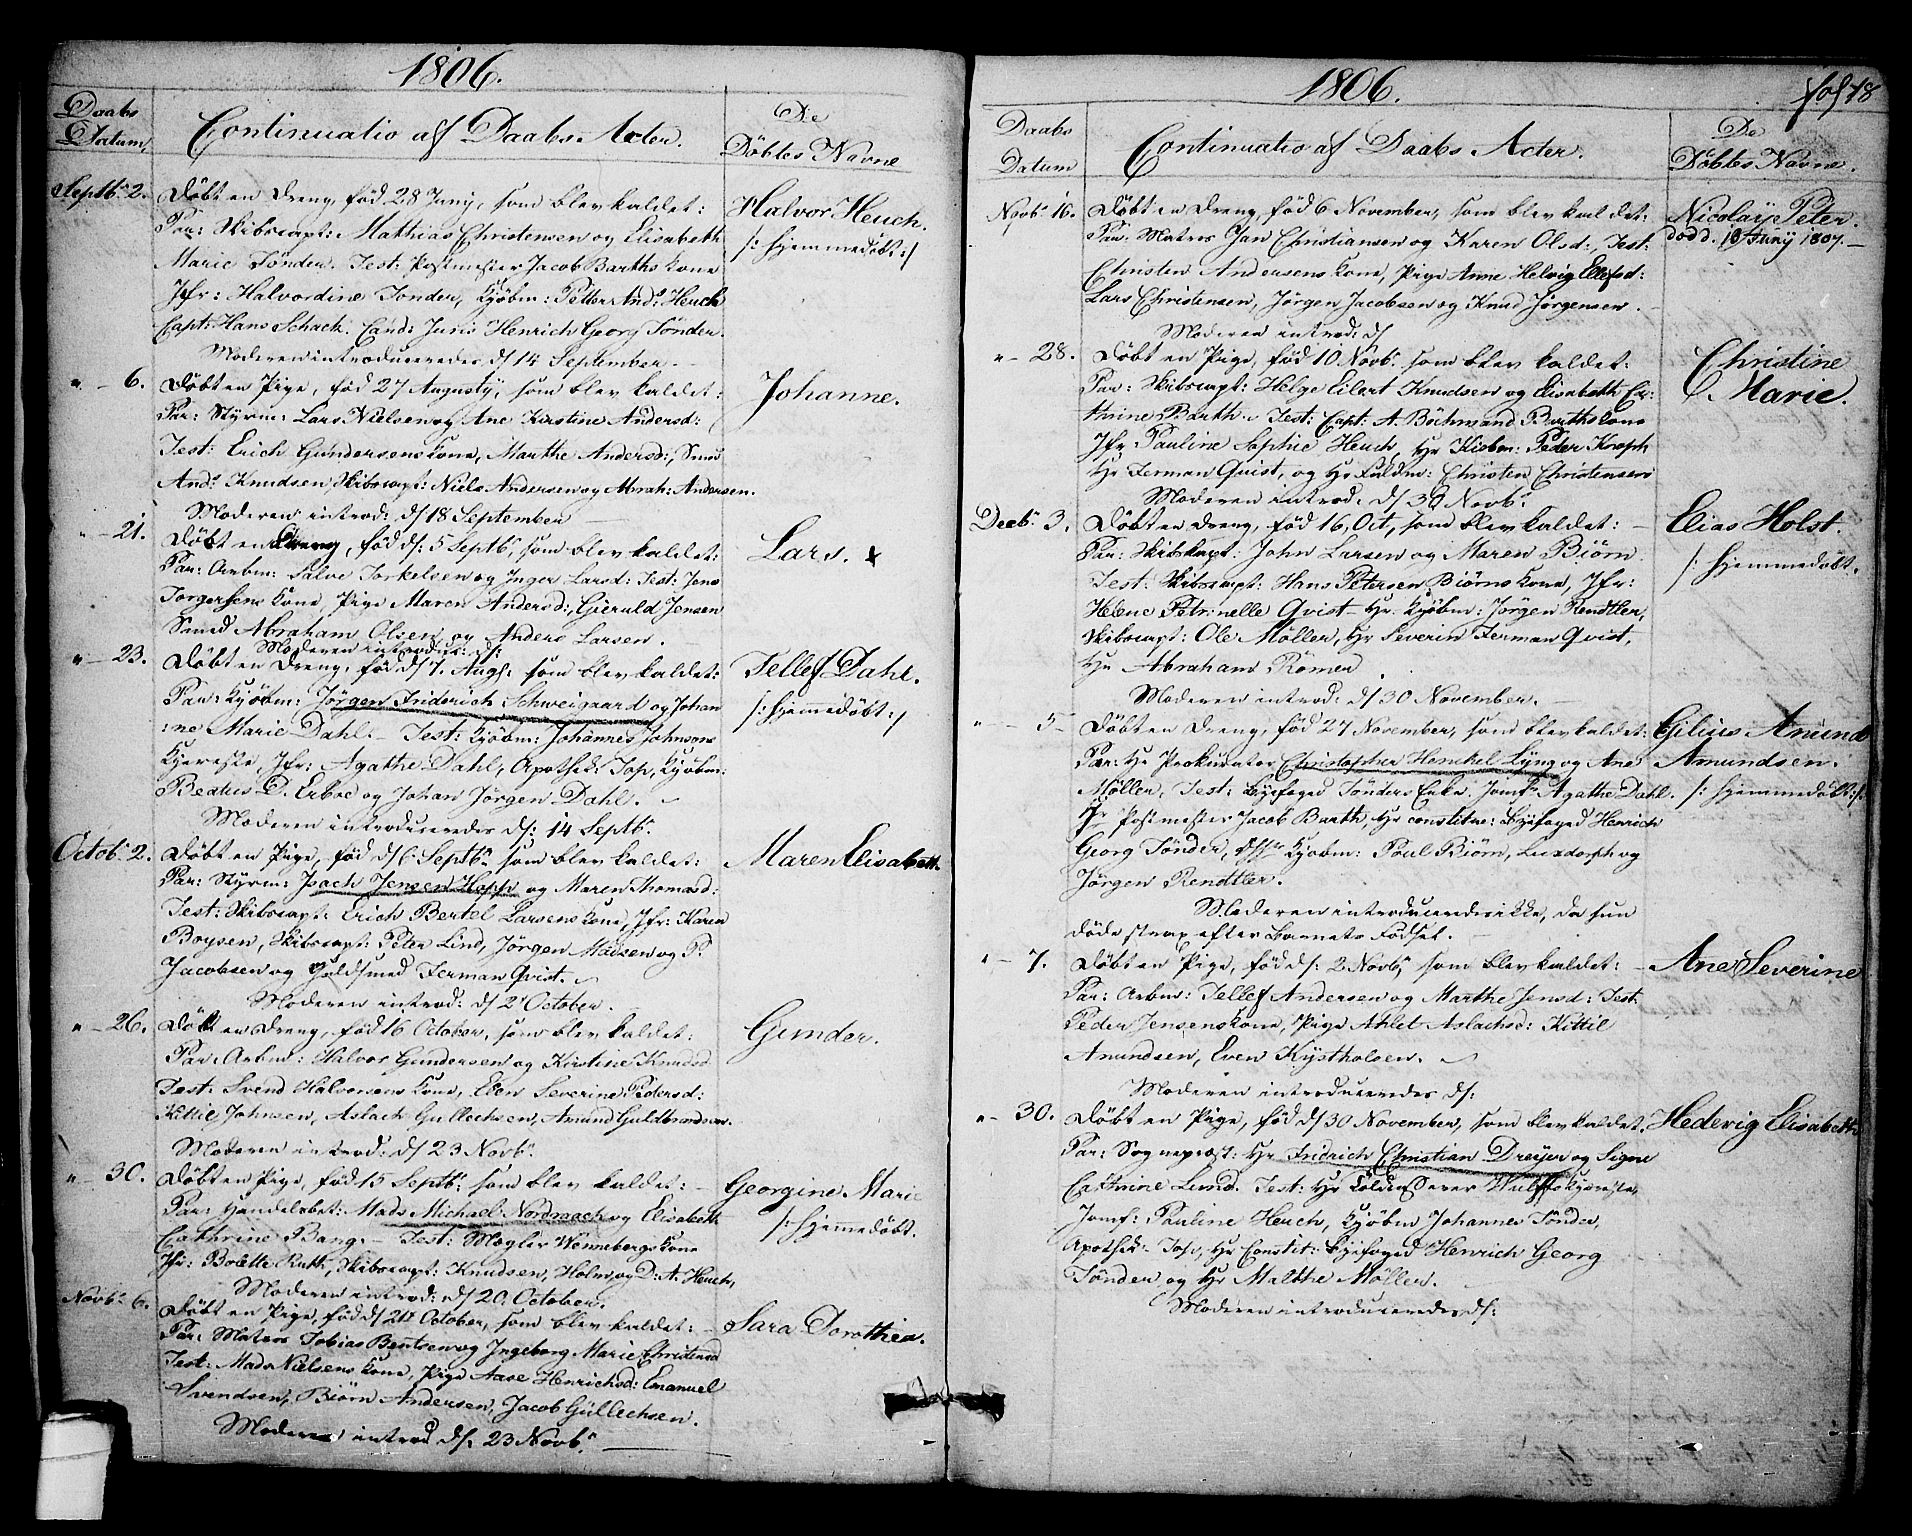 1806.
Daabs Datum,
Continuatio af Daabs Acter.
De Döbtes Navne
Septbr 2.
Döbt en Dreng, fød 28 Juny, som blev kaldet:
Halvor Heuch.
Par: Skibscapt: Mathias Christensen og Elisabeth
/: hjemmedöbt :/
Marie Tønder. Test: Postmester Jacob Barths Kone
Jfr: Halvordine Tonder, Kjøbm: Petter Andr. Heuch
Capt: Hans Schack. Cand: Juris Henrich Georg Tönder.
Moderen introduceredes d/ 14 September.
" – 6.
Döbt en Pige, fød 27 Augusty, som blev kaldet:
Johanne.
Par: Styrm: Lars Nielsen og Ane Kirstine Andersd:
Test: Erich Gundersens Kone, Marthe Andersd:, Smed
Andr. Knudsen, Skibscapt: Niels Andersen og Abrah: Andersen.
Moderen introd: d/ 18 September
" – 21.
Döbt en Dreng, fød d/: 5 Septb, som blev kaldet:
Lars. x
Par: Arbm: Salve Torkelsen og Inger Larsd: Test: Jens
Torgersens Kone, Pige Maren Andersd:, Gieruld Jensen
Smed Abraham Olsen og Anders Larsen.
Moderen introduc: d/:
" – 23.
Döbt en Dreng, fød d/ 7. Aug: som blev kaldet:
Tellef Dahl.
Par: Kjøbm: Jörgen Friderich Schweigaard og Johan
/: hjemmedöbt :/
:ne Marie Dahl. – Test: Kjøbm: Johannes Johnsons
Kjereste, Jfr: Agathe Dahl, Apothek: Top, Kjøbm:
Beatus D. Erboe og Johan Jörgen Dahl.
Moderen introduceredes d/: 14 Septb.
Octobr. 2.
Döbt en Pige, fød d/ 6 Septbr som blev kaldet:
Maren Elisabeth.
Par: Styrm: Isach Jensen Hopp og Maren Thomasd:
Test: Skibscapt: Erich Bertel Larsens Kone, Jfr: Karen
Boysen, Skibscapt: Peter Lind, Jörgen Madsen og P.
Jacobsen og Guldsmed Ferman Qvist.
Moderen introd: d/ 2 October.
" – 26.
Döbt en Dreng, fød 16 October, som blev kaldet:
Gunder.
Par: Arbm: Halvor Gundersen og Kirstine Knudsd
Test: Svend Halvorsens Kone, Elen Severine Pedersd:
Kittil Johnsen, Aslach Gullechsen, Amund Guldbrandsen.
Moderen introd: d/ 23 Novbr.
" – 30.
Döbt en Pige, fød 15 Septbr. som blev kaldet:
Georgine Marie
Par: Handelsbet: Mads Michael Nordraach og Elisabeth
/: hjemmedöbt.
Cathrine Bang. – Test: Mægler Wennebergs Kone
Jfr: Bolette Ruth, Skibscapt: Knudsen, Holm, og D: A. Heuch,
Moderen introd: d/ 20 October.
Novbr. 6.
Döbt en Pige, fød d/ 21 October, som blev kaldet:
Sara Dorothea.
Par: Matros Tobias Bentsen og Ingeborg Marie Christensd
Test: Mads Nielsens Kone, Pige Aase Henrichsd: Emanuel
Svendsen, Biörn Andersen, Jacob Güllechsen.
Moderen introd d/. 23 Novbr.
1806.
fol 78
Daabs Datum
Continuatio af Daabs Acter.
De Döbtes Navne.
Novbr 16.
Döbt en Dreng, fød 6 November, som blev kaldet:
Nicolaÿe Peter.
Par. Matros Jan Christiansen og Karen Olsd: Test:
død d. 18 Juny 1807.
Christen Andersens Kone, Pige Anne Helvig Ellefsd:
Lars Christensen, Jörgen Jacobsen og Knud Jörgensen.
Moderen introd: d/
" – 28.
Döbt en Pige, fød 10 Novbr. som blev kaldet:
Christine Marie.
Par: Skibscapt: Helge Eilert Knudsen og Elisabeth Ca-
thrine Barth. Test: Capt: A. Böchmand Barths Kone
Jfr: Pauline Sophie Heuch, Hr Kiøbm: Peder Knoph
Hr Ferman Qvist, og Hr Fuldm: Christen Christensen
Moderen introd: d/ 30 Novbr
Decbr 3.
Döbt en Dreng, fød 16. Oct, som blev kaldet:
Elias Holst.
Par: Skibskapt: John Larsen og Maren Biörn.
/: hjemmedöbt.
Test: Skibscapt: Hans Petersen Biörns Kone, Jfr:
Helene Petrinelle Qvist – Hr. Kjøbm: Jörgen Rendtler,
Skibscapt: Ole Möller, Hr Severin Ferman Qvist,
Hr Abraham Römer.
Moderen introd: d/ 30 November.
" – 5
Döbt en Dreng, fød 27 November, som blev kaldet:
Gilius Amund Amundsen.
Par: Hr Prokurator Christopher Henchel Lÿng og Ane
Möller, Test: Byefoged Tönders Enke, Jomfr. Agathe Dahl.
/: hjemmedöbt :/
Hr Postmester Jacob Barth, Hr constitue: Byefoged Henrich
Georg Tönder, Kjøbm: Poul Biörn, Luxdorph og
Jörgen Rendtler.
Moderen introduceredes ikke, da hun
døde strax efter Barnets Fødsel.
" – 7.
Döbt en Pige, fød d/: 2 Novbr, som blev kaldet:
Ane Severine
Par: Arbm: Tellef Andersen og Marthe Jensd: Test:
Peder Jensens Kone, Pige Ahlet Aslachsd: Kittil
Amundsen, Even Kystholsen.
Moderen introduceredes d/:
" – 30.
Döbt en Pige, fød d/ 30 November, som blev kaldet.
Hedevig Elisabeth
Par: Sogneprest: Hr Fridrich Christian Dreÿer og Signe
Cathrine Lund. Test: Hr Wulffs Kjereste,
Jomf: Pauline Heuch, Kjøbm Johannes Tönder,
Apothek: Top, Hr Constit: Byefoged Henrich Georg
Tönder og Hr Malthe Möller.
Moderen introduceredes d/: